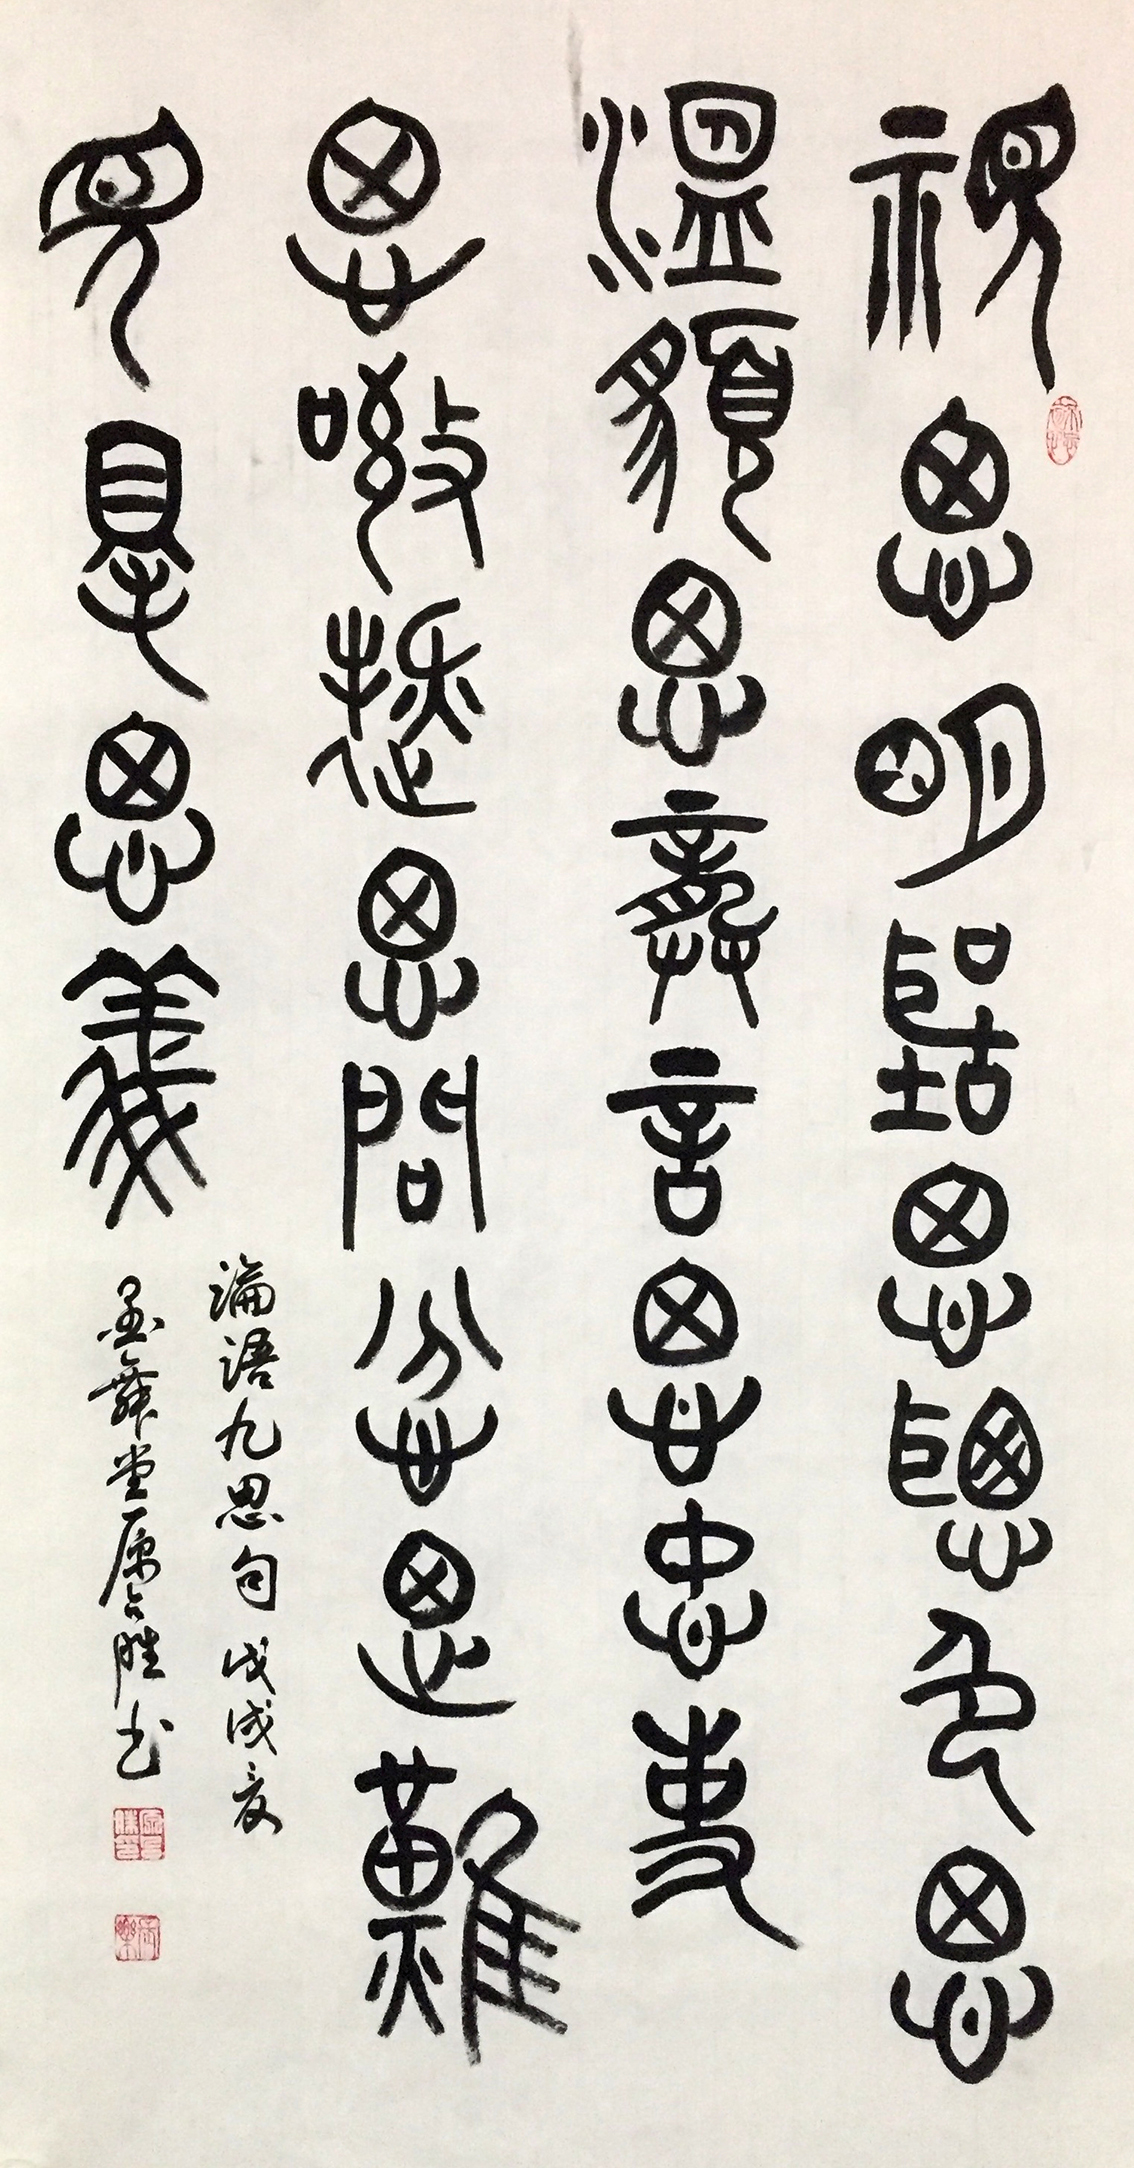 視思明聽思聰色思
溫貌思恭言思忠事
思敬疑思問忿思難
見得思義
論語九思句 戊戌夏
墨舞堂 勝书